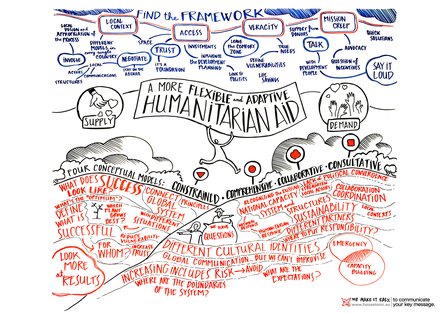 FIND THE FRAMEWORK
LOCAL CONTEXT
ACCESS
VERACITY
MISSION CREEP
LOCAL DESIGN and APPROPRIATION of the PROCESS
INVOLVE
LOCAL ACTORS
STRUCTURES
DIFFERENT MODELS in every single COUNTRY
COMMUNICATIONS
SPACE
NEGOTIATE
TRUST
IT'S a FOUNDATION
INVESTMENTS
INFLUENCE the DEVELOPMENT PLANNING
LEAVE the COMFORT ZONE
LINK to POLITICS
DEFINE VULNERABILITIES
LIFE SAVINGS
SUPPORT from DONORS
TALK
with DEVELOPMENT PEOPLE
ADVOCACY
QUESTION of INCENTIVES
QUICK SOLUTIONS
SAY IT LOUD
A MORE FLEXIBLE and ADAPTIVE
HUMANITARIAN AID
SUPPLY
DEMAND
FOUR CONCEPTUAL MODELS:
CONSTRAINED - COMPREHENSIVE - COLLABORATIVE - CONSULTATIVE
WHAT DOES SUCCESS LOOK LIKE?
CONNECT PRINCIPLES
GLOBAL SYSTEM
WITH DIFFERENT SITUATIONS
DEFINE WHAT IS SUCCESSFUL
FOR WHOM?
REDUCE VULNERABILITIES
TRUST
LOOK MORE at RESULTS
QUESTIONS
NATIONAL CAPACITY
SYSTEM
STRUCTURES
POLITICAL CONVERGENCE
COLLABORATION
COORDINATION
SUSTAINABILITY
DIFFERENT PARTNERS
WHERE TO PUT RESPONSIBILITY?
DIFFERENT CULTURAL IDENTITIES
GLOBAL COMMUNICATION... BUT WE CAN'T IMPROVISE
INCREASING INCLUDES RISK → AVOID
WHAT ARE THE EXPECTATIONS?
WHERE ARE THE BOUNDARIES of the SYSTEM?
EMERGENCY
CAPACITY BUILDING
WE MAKE IT EASY to communicate
your key message.